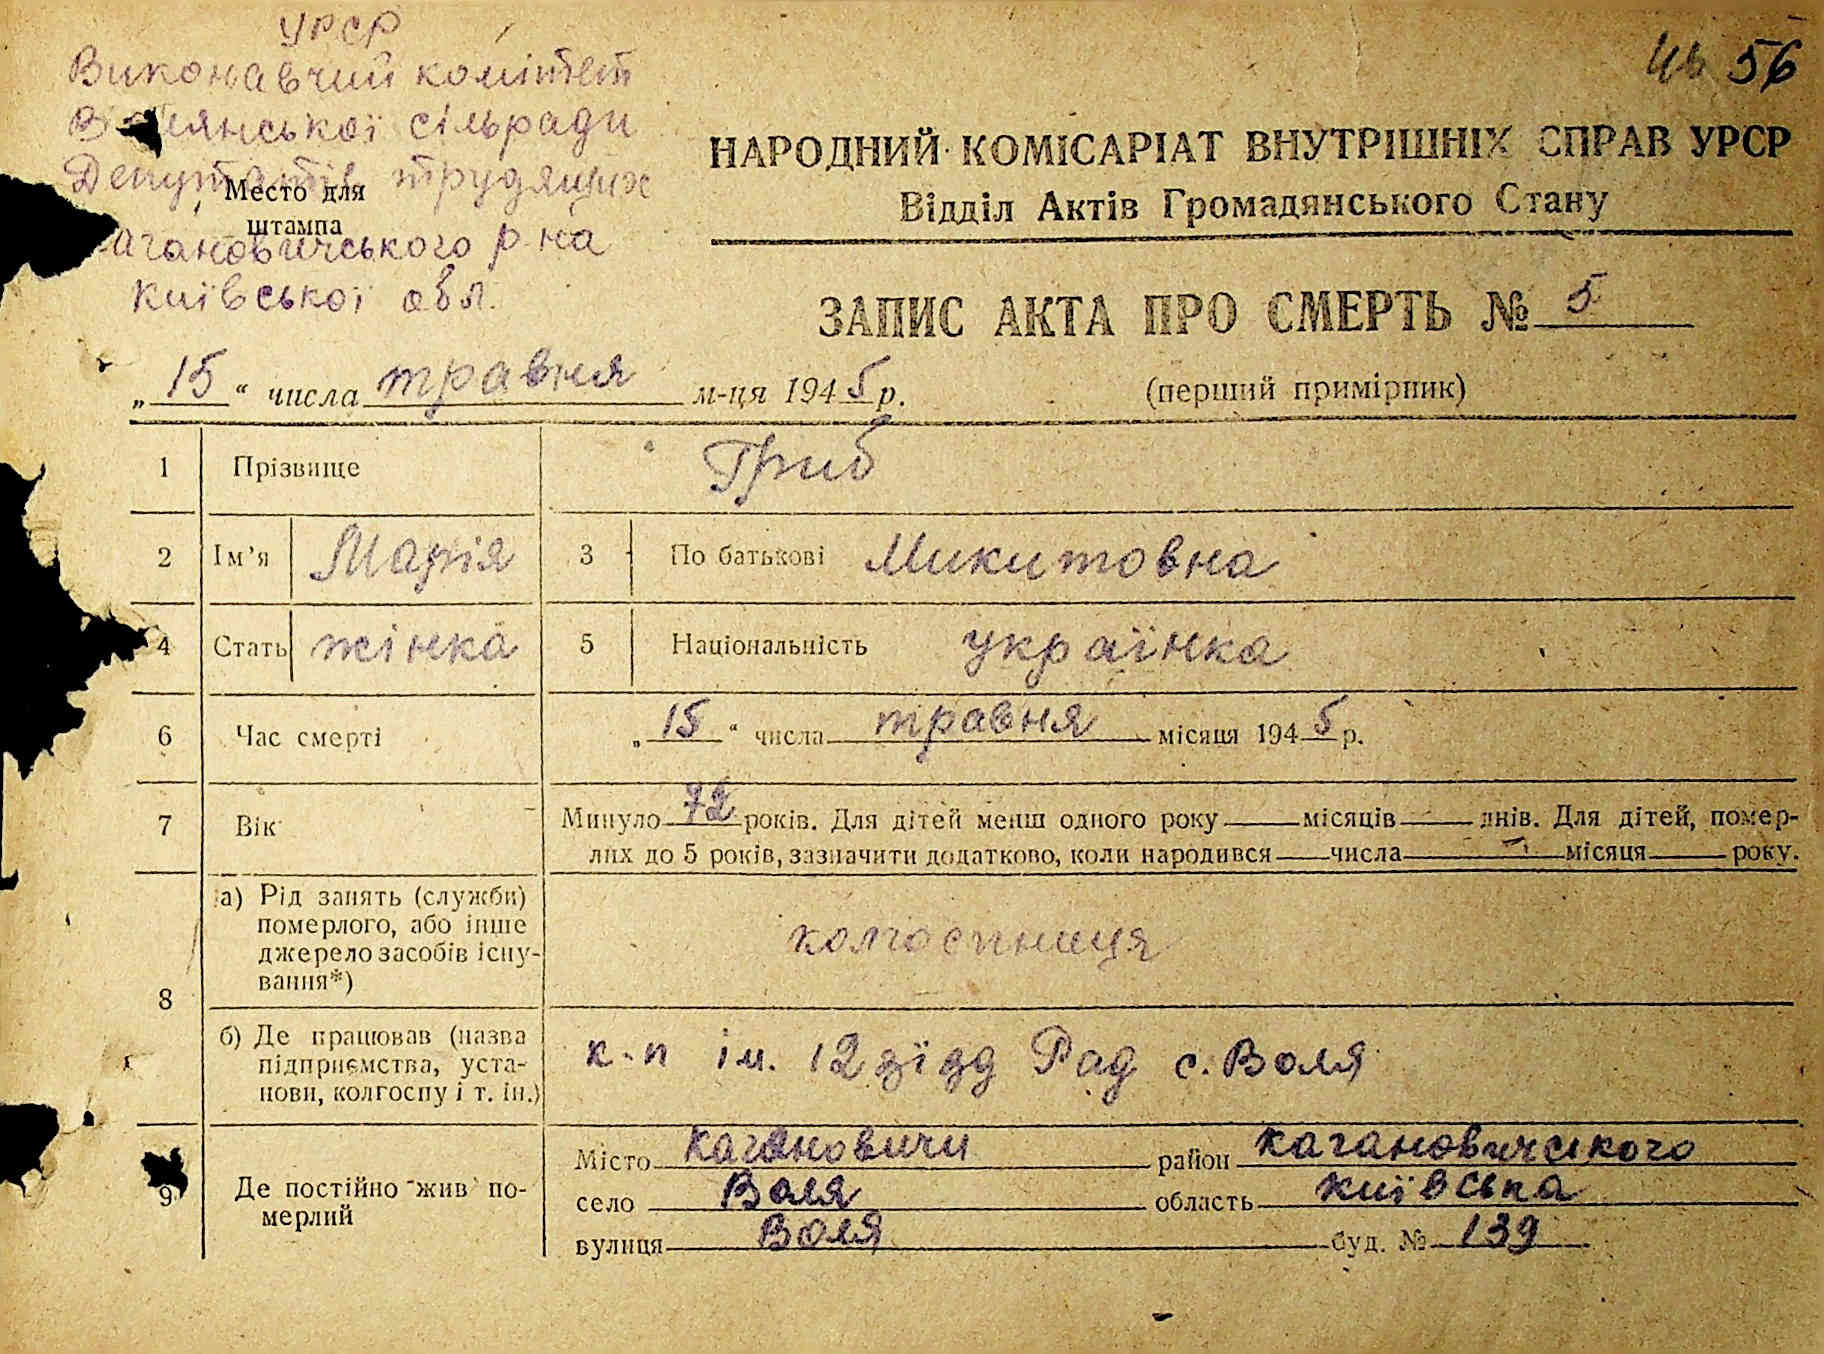 УРСР
Виконавчий комітет
сільради
Депутатів трудящих
Место для
штампа
агановичського р-на
Київської обл.
56
НАРОДНИЙ КОМІСАРІАТ ВНУТРІШНІХ СПРАВ УРСР
Відділ Актів Громадянського Стану
ЗАПИС АКТА ПРО СМЕРТЬ № 5
„15“ числа травня м-ця 1945 р.
(перший примірник)
1 Прізвище Гриб
2 Ім’я Марія 3 По батькові Микитовна
4 Стать жінка 5 Національність українка
6 Час смерті „15“ числа травня місяця 1945 р.
7 Вік Минуло 72 років. Для дітей менш одного року місяців днів. Для дітей, помер-
лих до 5 років, зазначити додатково, коли народився числа місяця року.
8 а) Рід занять (служби)
померлого, або інше
джерело засобів існу-
вання*)
колгоспниця
б) Де працював (назва
підприємства, уста-
нови, колгоспу і т. ін.)
к-п ім. 12 Рад с. Воля
9 Де постійно жив по-
мерлий
Місто Кагановичи район Кагановичського
село Воля область Київська
вулиця Воля буд. № 139